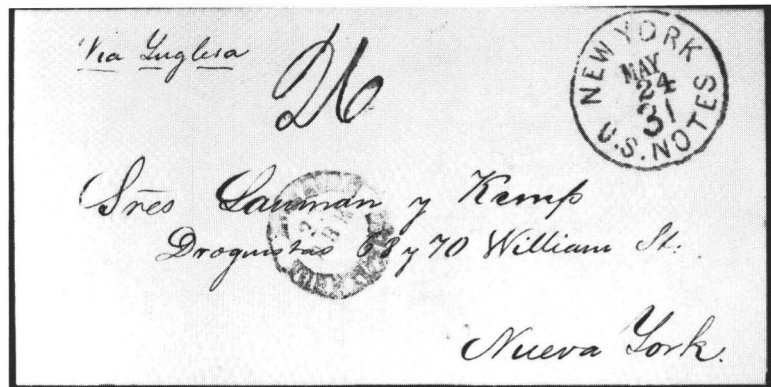 Via Ynglesa
26
NEW YORK
MAY
24
31
U.S. NOTES
Sres Lanman y Kemp
Droguistas 68 y 70 William St.
Nueva York.